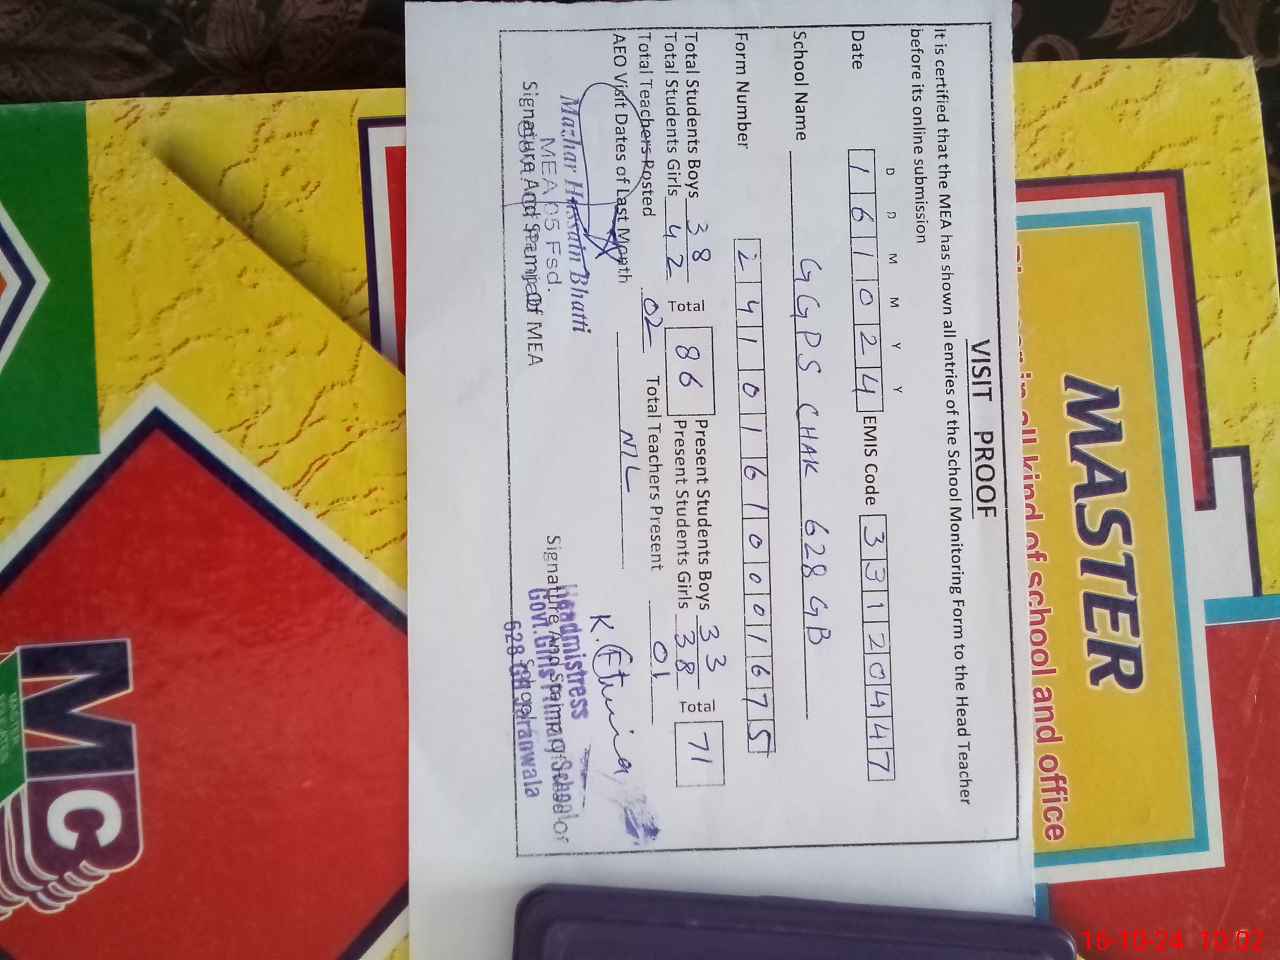 VISIT PROOF
It is certified that the MEA has shown all entries of the School Monitoring Form to the Head Teacher
before its online submission
D D M M Y Y
Date 1 6 1 0 2 4 EMIS Code 3 3 1 2 0 4 4 7
School Name GGPS CHAK 628 GB
Form Number 2 4 1 0 1 6 1 0 0 0 1 6 7 5
Total Students Boys 38 Total 86 Present Students Boys 33 Total 71
Total Students Girls 42 Present Students Girls 38
Total Teachers Posted 02 Total Teachers Present 01
AEO Visit Dates of Last Month NIL
Mazhar Hussain Bhatti
MEA 05 Fsd.
Signature And Stamp Of MEA
Headmistress
Signature And Stamp Of School
Govt. Girls Primary School
628 GB
MASTER
in all kind of school and office
MC
16-10-24 10:02